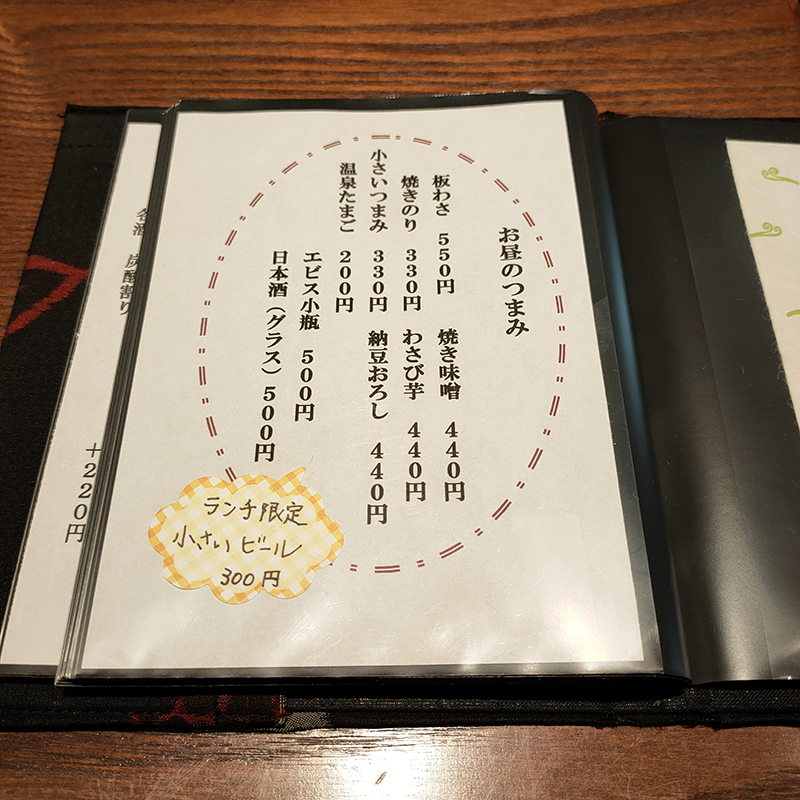 お昼のつまみ
板わさ 550円 焼き味噌 440円
焼きのり 330円 わさび芋 440円
小さいつまみ 330円 納豆おろし 440円
温泉たまご 200円
エビス小瓶 500円
日本酒（グラス）500円
ランチ限定
小さいビール
300円
炭酸割り +220円